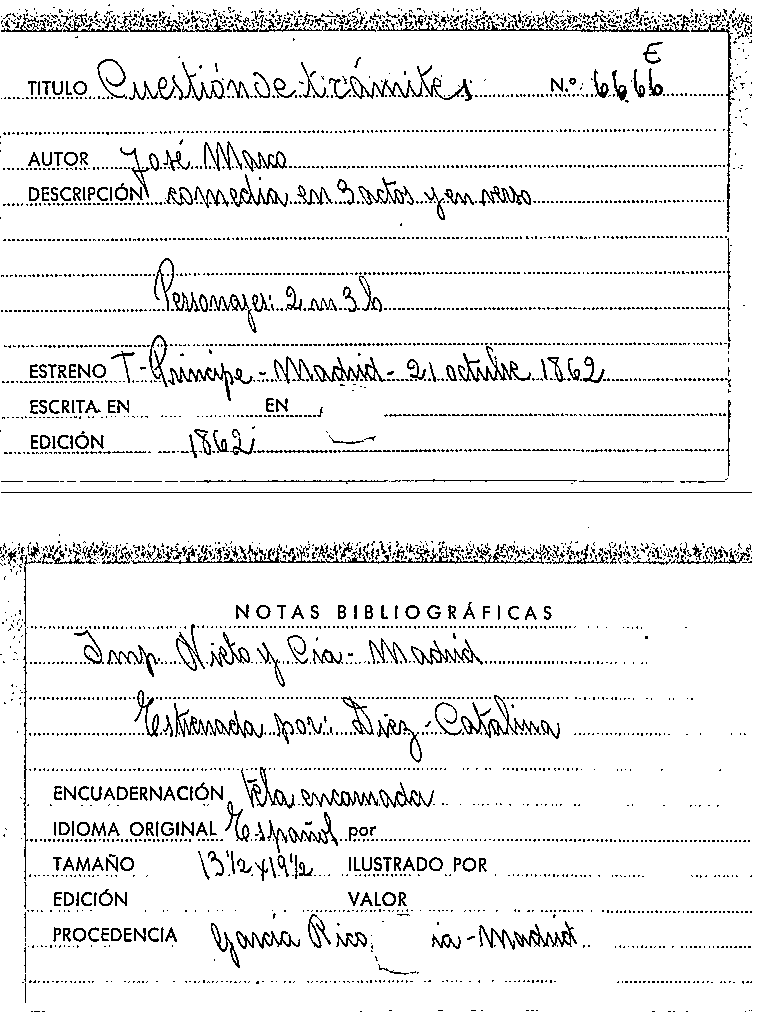 E
TITULO Cuestión de trámites N.º 6666
AUTOR José Marco
DESCRIPCIÓN comedia en 3 actos y en verso
Personajes: 2 m 3 h
ESTRENO T-Príncipe-Madrid-21 octubre 1862
ESCRITA EN EN
EDICIÓN 1862
NOTAS BIBLIOGRÁFICAS
Imp. Nieto y Cía-Madrid
Estrenada por: Díez-Catalina
ENCUADERNACIÓN Tela encarnada
IDIOMA ORIGINAL Español por
TAMAÑO 13½x19½ ILUSTRADO POR
EDICIÓN VALOR
PROCEDENCIA García Rico ia-Madrid